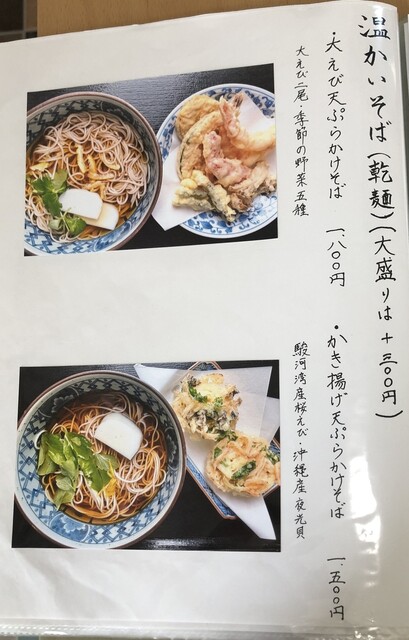 温かいそば(乾麺)(大盛りは+三〇〇円)
・大えび天ぷらかけそば 一、八〇〇円
大えび二尾・季節の野菜五種
・かき揚げ天ぷらかけそば 一、五〇〇円
駿河湾産桜えび・沖縄産夜光貝